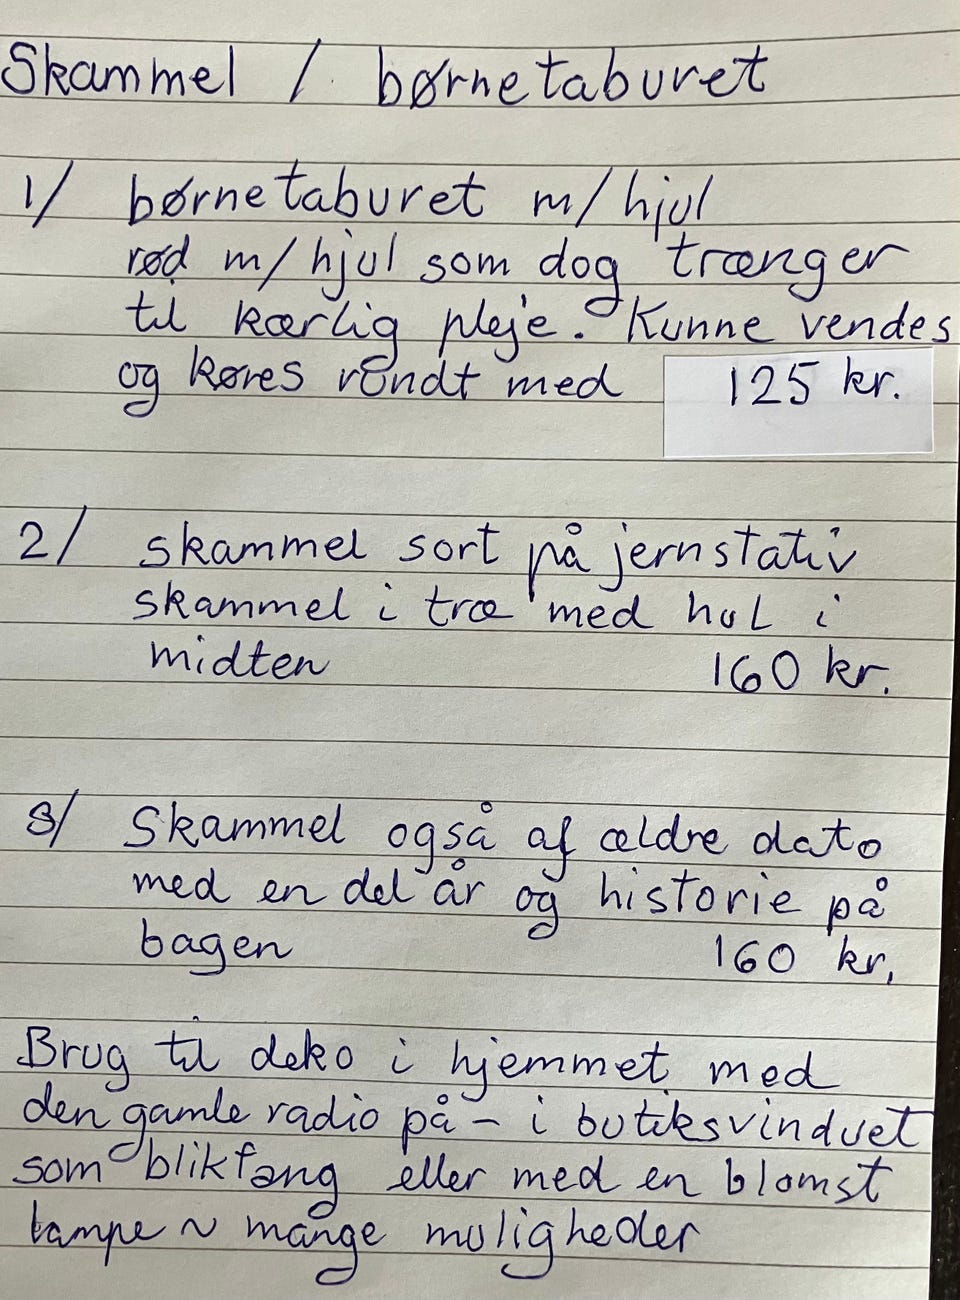 Skammel / børnetaburet
1/ børnetaburet m/hjul
rød m/hjul som dog trænger
til kærlig pleje. Kunne vendes
og køres rundt med 125 kr.
2/ skammel sort på jernstativ
skammel i træ med hul i
midten 160 kr.
3/ Skammel også af ældre dato
med en del år og historie på
bagen 160 kr.
Brug til deko i hjemmet med
den gamle radio på – i butiksvinduet
som blikfang eller med en blomst
lampe ~ mange muligheder